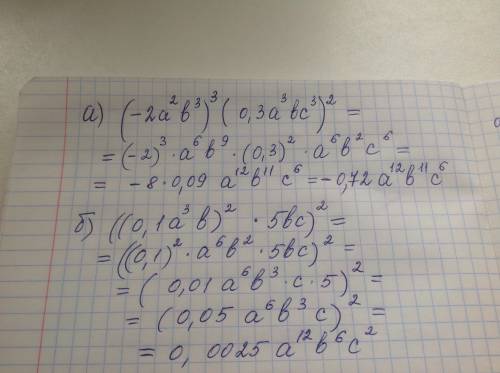 а) (-2a²b³)³ (0,3a³bc³)² =
= (-2)³ · a⁶b⁹ · (0,3)² · a⁶b²c⁶ =
= -8 · 0,09 a¹²b¹¹c⁶ = -0,72 a¹²b¹¹c⁶
б) ((0,1a³b)² · 5bc)² =
= ((0,1)² · a⁶b² · 5bc)² =
= (0,01 a⁶b³ · c · 5)² =
= (0,05 a⁶b³c)² =
= 0,0025 a¹²b⁶c²